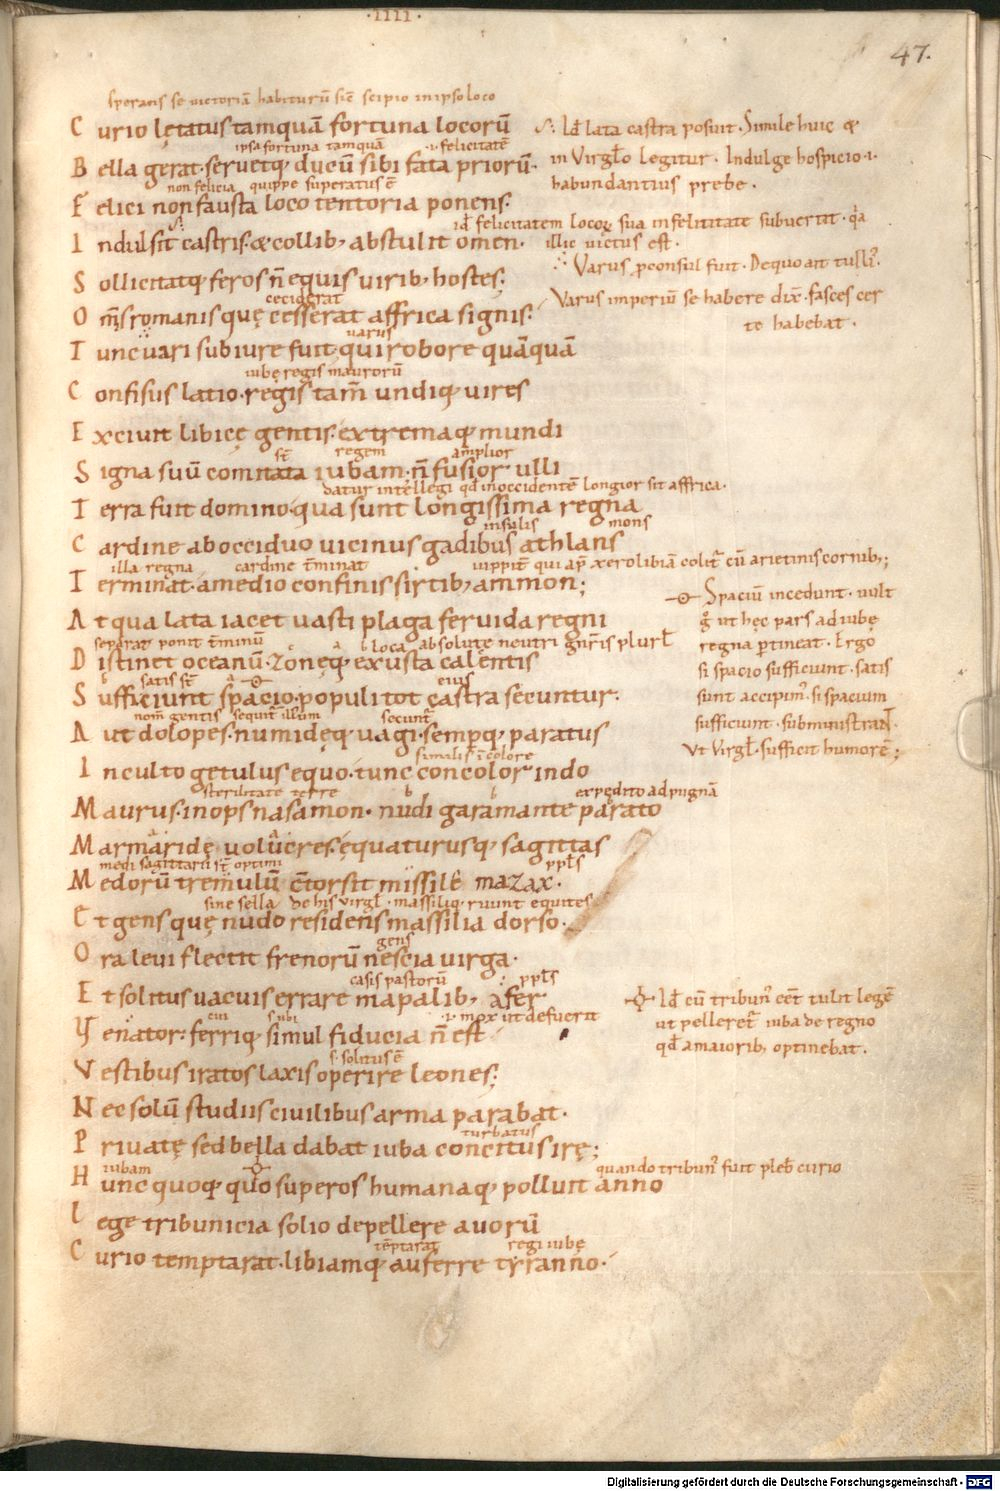 ·IIII·
47.
sperans se victoriā habiturū sic̄ scipio in ipso loco
C urio lętatus tamquā fortuna locorū
ipsa fortuna tamquā ·i· felicitatē
B ella gerat· seruetq; ducum sibi fata priorū·
non felicia quippe superatus ē
F elici non fausta loco tentoria ponens·
I ndulsit castris· & collib; abstulit omen·
S ollicitatq; feros n̄ equis virib; hostes;
ceciderat
O m̄s romanis quę cesserat affrica signis·
T unc uari sub iure fuit· qui robore quāquā
varus
iubę regis maurorū
C onfisus latio· regis tam̄ undiq; vires
E xciuit libicę gentis· extremaq; mundi
st̄ regem amplior
S igna suū comitata iubam· n̄ fusior ulli
datur intellegi qđ in occidente longior sit affrica·
T erra fuit domino· qua sunt longissima regna
insulis mons
C ardine ab occiduo vicinus gadibus athlans
illa regna cardine t̄minat iuppit̄ qui ap̄ xerolibiā colit̄ cū arietinis cornib;;
T erminat· a medio confinis sirtib; ammon;
A t qua lata iacet vasti plaga feruida regni
separat ponit t̄minū b loca absolute neutri gn̄ris plurł
D istinet oceanū· zonęq; exusta calentis
satis st̄ eius
S ufficiunt spacio· populi tot castra secuntur·
nom̄ gentis sequnt̄ illum secunt̄
A ut dolopes· numidęq; vagi· sempq; paratus
similis ī colore
I nculto getulus equo· tunc concolor indo
sterilitate terre b b expędito ad pugnā
M aurus· inops nasamon· nudi garamante parato
M armaridę volucres· ęquaturusq; sagittas
medi sagittarii st̄ optimi ppłs
M edorū tremulū c̄torsit missile mazax·
sine sella de his virgł· massiliq; ruunt equites
E t gens quę nudo residens massilia dorso·
gens
O ra leui flectit frenorū nescia virga·
casis pastorū ppłs
E t solitus vacuis errare mapalib; afer
cui subi ·i· mox ut defuerit
V enator: ferriq; simul fiducia n̄ est
s· solitus ē
V estibus iratos laxis operire leones;
N ec solū studiis ciuilibus arma parabat·
turbatus
P riuatę sed bella dabat iuba concitus irę;
iubam quando tribun' fuit pleb̄ curio
H unc quoq; quo superos humanaq; polluit anno
L ege tribunicia solio depellere auorū
tēptarat regi iubę
C urio temptarat· libiamq; auferre tyranno·
Id̄ lata castra posuit· Simile huic &
in Virgłō legitur· Indulge hospicio ·i·
habundantius prebe·
id̄ felicitatem locoꝝ sua infelicitate subuertit· q̇a
illic victus est·
Varus ꝓconsul fuit· De quo ait tulli'·
Varus imperiū se habere dix̄· fasces cer
te habebat·
Spaciū incedunt· vult
g̊ ut hęc pars ad iubę
regna ꝑtineat· Ergo
si spacio sufficiunt· satis
sunt accipim'· si spacium
sufficiunt· subministrant·
Ut Virgł· sufficit humorē;
Id̄ cū tribun' eēt tulit legē
ut pelleret̄ iuba de regno
qđ a maiorib; optinebat·
Digitalisierung gefördert durch die Deutsche Forschungsgemeinschaft - DFG